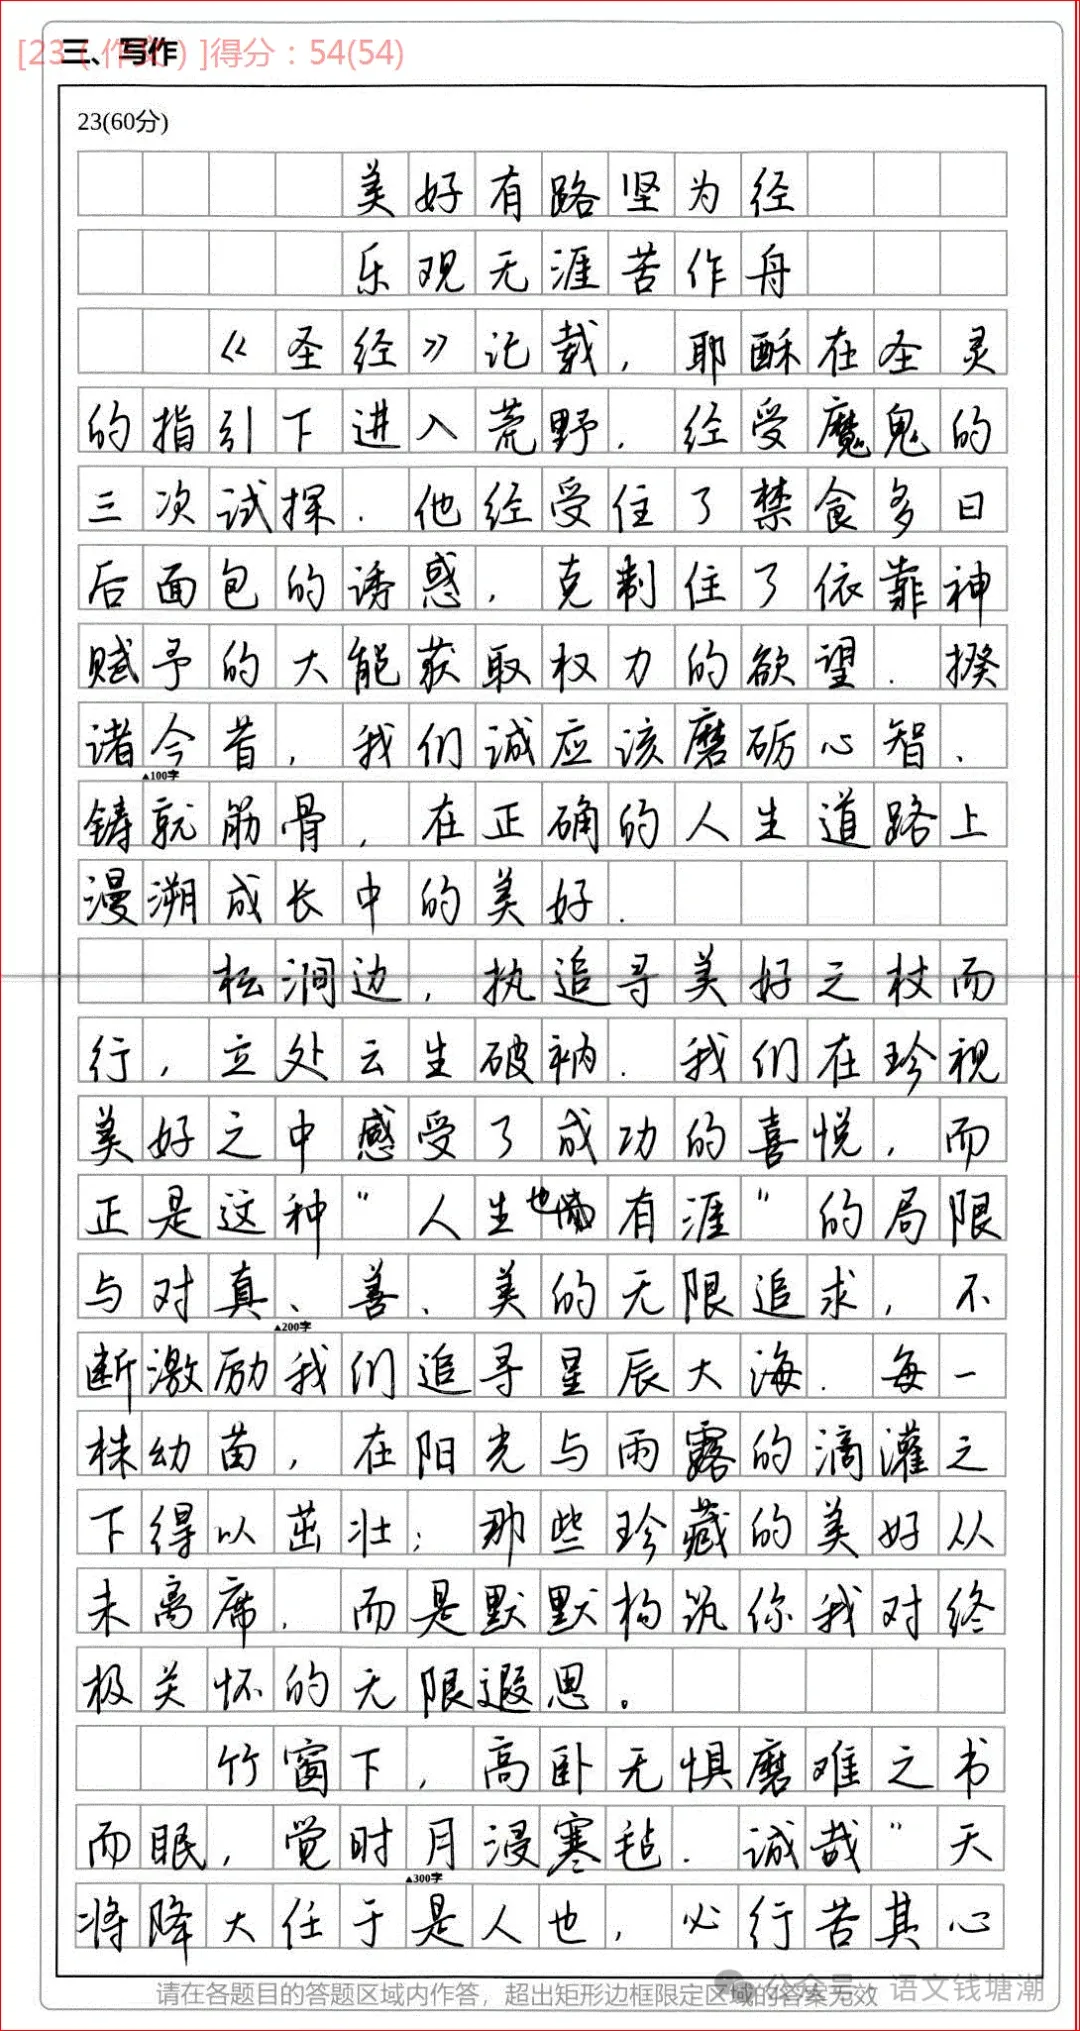 [23（作文）]得分：54(54)
三、写作
23(60分)
美好有路坚为经
乐观无涯苦作舟
《圣经》记载，耶酥在圣灵
的指引下进入荒野．经受魔鬼的
三次试探．他经受住了禁食多日
后面包的诱惑，克制住了依靠神
赋予的大能获取权力的欲望．揆
诸今昔，我们诚应该磨砺心智、
▲100字
铸就筋骨，在正确的人生道路上
漫溯成长中的美好．
松涧边，执追寻美好之杖而
行，立处云生破衲．我们在珍视
美好之中感受了成功的喜悦，而
正是这种"人生也有涯"的局限
与对真、善、美的无限追求，不
▲200字
断激励我们追寻星辰大海．每一
株幼苗，在阳光与雨露的滴灌之
下得以茁壮；那些珍藏的美好从
未离席．而是默默构筑你我对终
极关怀的无限遐思。
竹窗下，高卧无惧磨难之书
而眠，觉时月浸寒毡．诚哉"天
▲300字
将降大任于是人也，必行苦其心
请在各题目的答题区域内作答，超出矩形边框限定区域的答案无效
公众号·语文钱塘潮